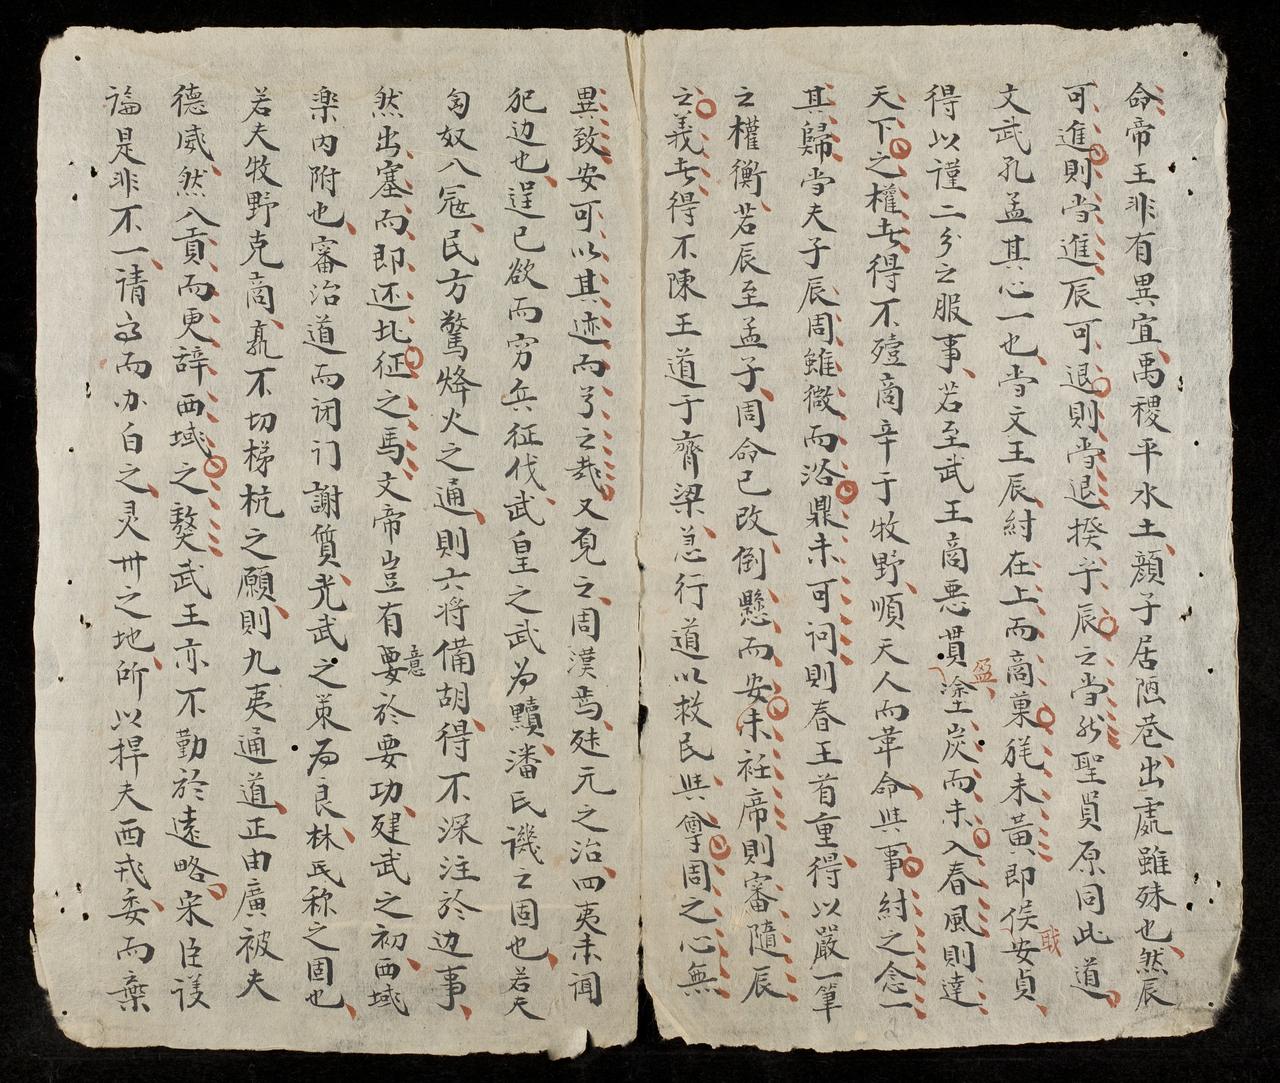 命帝王非有異宜禹稷平水土顔子居陋巷出處雖殊也然辰
可進則当進辰可退則当退揆乎辰之当然聖員原同此道
文武孔孟其心一也当文王辰紂在上而商菓旄未黄即侯安貞
得以謹二分之服事若至武王商悪貫塗炭而未入春風則達
盈
天下之權𠀧得不殪商辛于牧野順天人而革命与事紂之念一
其歸当夫子辰周雖微而洛鼎未可问則春王首重得以嚴一筆
之權衡若辰至孟子周命已改倒懸而安未衽席則審隨辰
之義𠀧得不陳王道于齊梁急行道以救民与尊周之心無
異致安可以其迹而𠔃之哉又覓之周漢焉廷元之治四夷未闻
犯边也逞已欲而穷兵征伐武皇之武为黷潘氏譏之固也若夫
匈奴入寇民方驚烽火之通則六将備胡得不深注於边事
然出塞而即还北征之馬文帝岂有要於要功建武之初西域
意
楽内附也審治道而闭门謝質光武之策为良林氏称之固也
若夫牧野克商孰不切梯杭之願則九夷通道正由廣被夫
德威然入貢而更辞西域之獒武王亦不勤於遠略宋臣议
論是非不一请而办白之灵州之地所以捍夫西戎委而棄